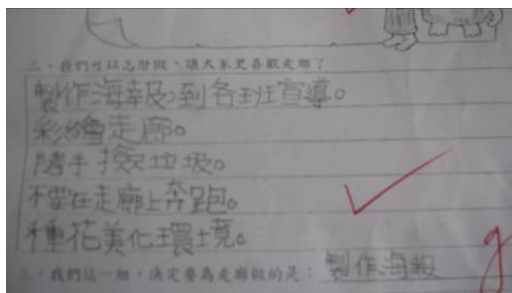 二、我們可以怎麼做，讓大家更喜歡走廊？
製作海報到各班宣導。
彩繪走廊。
隨手撿垃圾。
不要在走廊上奔跑。
種花美化環境。
三、我們這一組，決定要為走廊做的是：製作海報